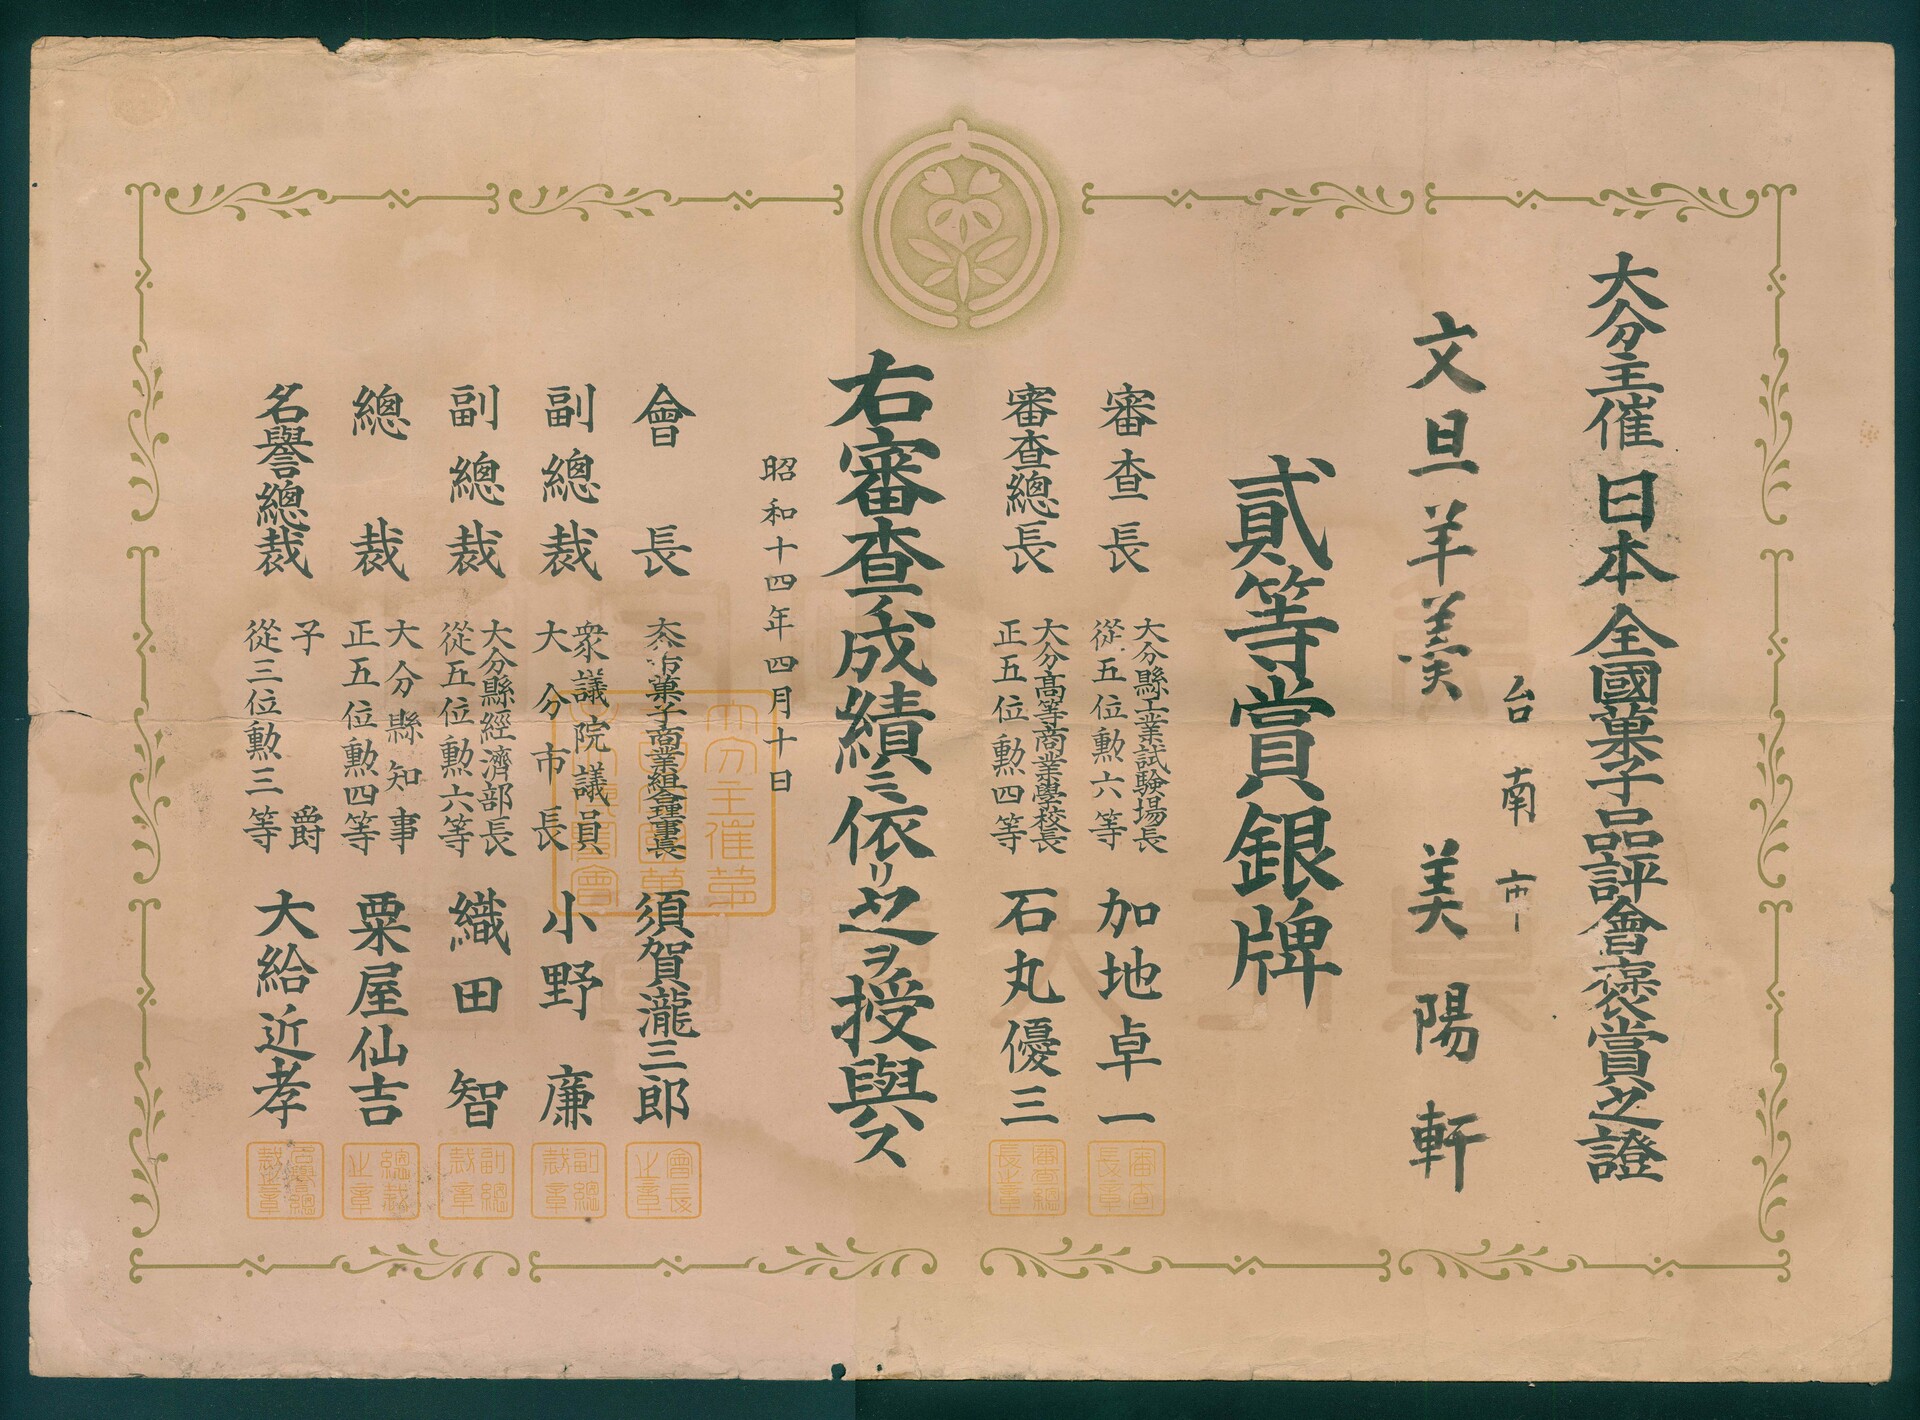 大分主催日本全國菓子品評會褒賞之證
台南市
文旦羊羹 美陽軒
貳等賞銀牌
審査長 大分縣工業試驗場長 從五位勲六等 加地卓一
審査總長 大分高等商業學校長 正五位勲四等 石丸優三
右審査ノ成績ニ依リ之ヲ授與ス
昭和十四年四月十日
會長 菓子商業組合理事長 須賀瀧三郎
副總裁 衆議院議員 大分市長 小野廉
副總裁 大分縣經濟部長 從五位勲六等 織田智
總裁 大分縣知事 正五位勲四等 粟屋仙吉
名譽總裁 子爵 從三位勲三等 大給近孝
審査長章
審査總長之章
會長之章
副總裁章
副總裁章
總裁之章
名譽總裁之章